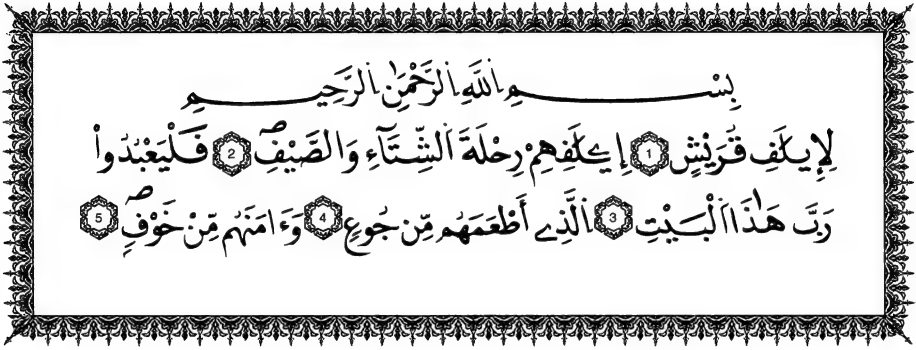 بِسْمِ اِللَّهِ اِلرَّحْمَٰنِ اِلرَّحِيمِ
لِإِيلَٰفِ قُرَيْشٍ 1 إِۦلَٰفِهِمْ رِحْلَةَ اَلشِّتَآءِ وَالصَّيْفِۖ 2 فَلْيَعْبُدُواْ
رَبَّ هَٰذَا اَلْبَيْتِ 3 اِلَّذِے أَطْعَمَهُم مِّن جُوعٍ 4 وَءَامَنَهُم مِّنْ خَوْفٍۖ 5